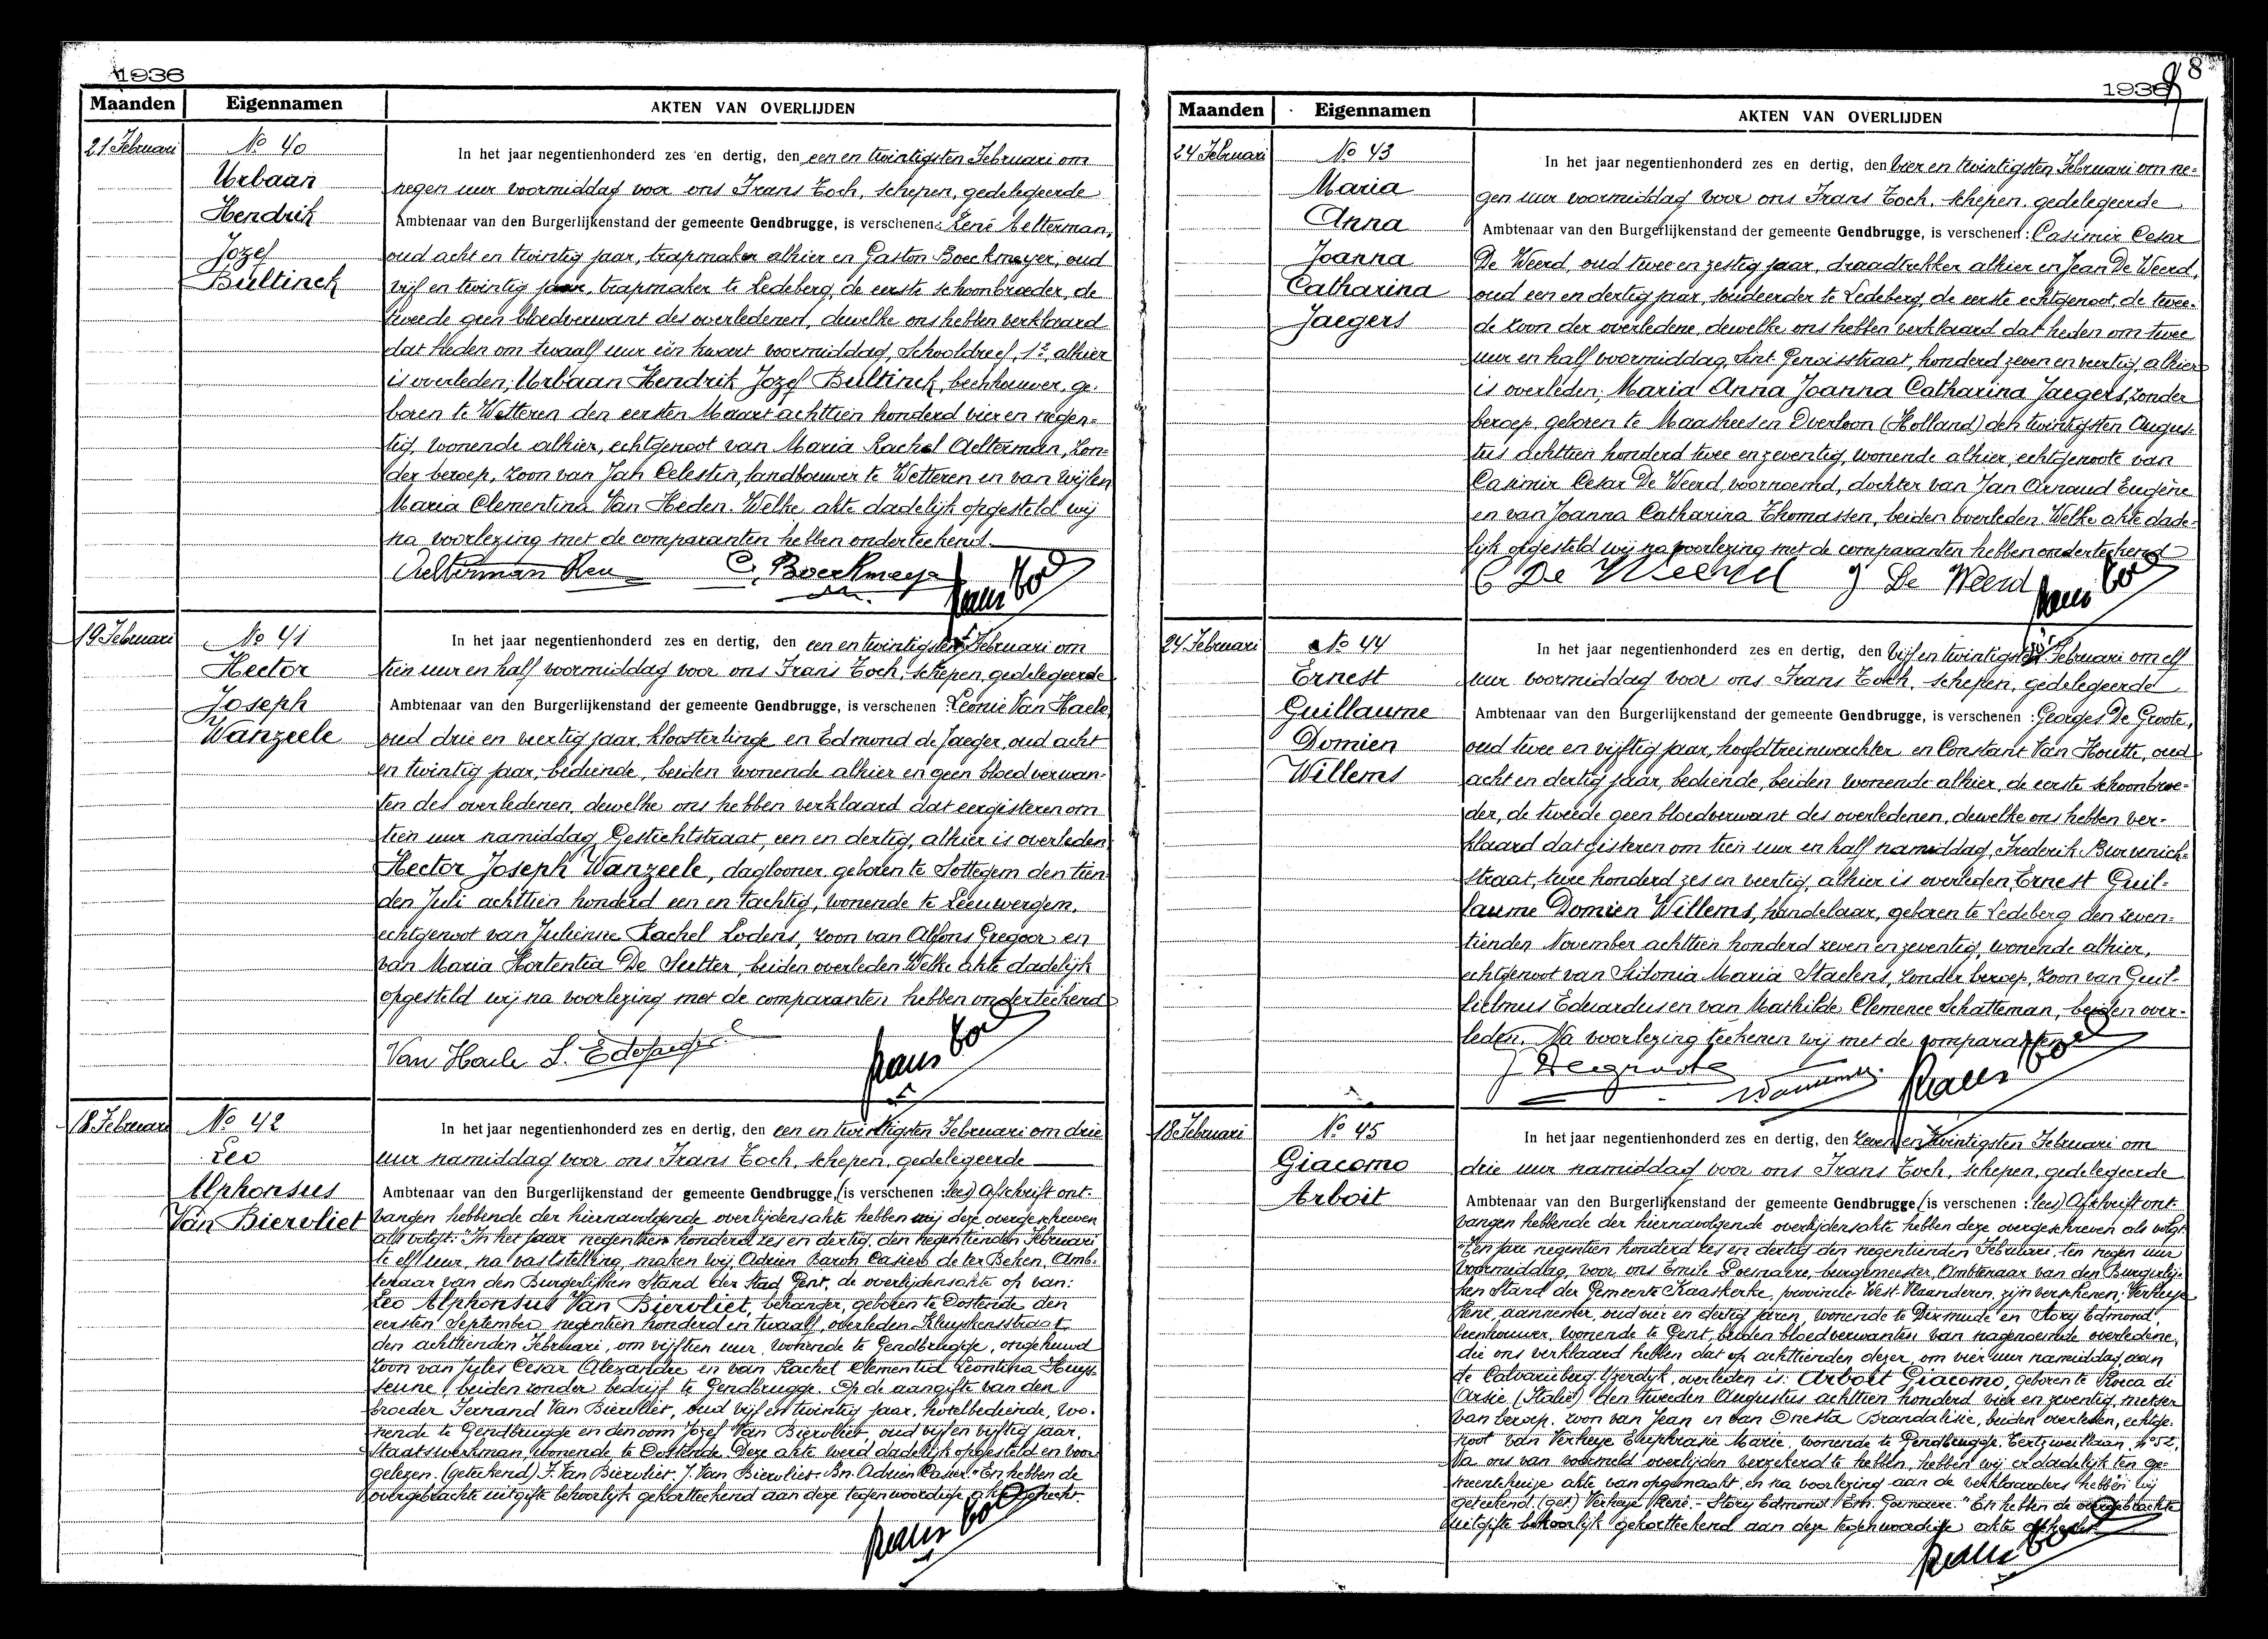 1936
Maanden Eigennamen AKTEN VAN OVERLIJDEN
21 Februari
No 40
Urbaan
Hendrik
Jozef
Bultinck
In het jaar negentienhonderd zes en dertig, den een en twintigsten Februari om
negen uur voormiddag voor ons Frans Toch, schepen, gedelegeerde
Ambtenaar van den Burgerlijkenstand der gemeente Gendbrugge, is verschenen: René Aelterman,
oud acht en twintig jaar, trapmaker alhier en Gaston Boeckmeyer, oud
vijf en twintig jaar, trapmaker te Ledeberg, de eerste schoonbroeder, de
tweede geen bloedverwant des overledenen, dewelke ons hebben verklaard
dat heden om twaalf uur één kwart voormiddag, Schooldreef, 12, alhier
is overleden, Urbaan Hendrik Jozef Bultinck, beenhouwer, ge-
boren te Wetteren den eersten Maart achttien honderd vier en negen-
tig, wonende alhier, echtgenoot van Maria Rachel Aelterman, zon-
der beroep, zoon van Jan Celestin, landbouwer te Wetteren en van wijlen
Maria Clementina Van Heden. Welke akte dadelijk opgesteld wij
na voorlezing met de comparanten hebben onderteekend.
Aelterman Ren
19 Februari
No 41
Hector
Joseph
Wanzeele
In het jaar negentienhonderd zes en dertig, den een en twintigsten Februari om
tien uur en half voormiddag voor ons Frans Toch, schepen, gedelegeerde
Ambtenaar van den Burgerlijkenstand der gemeente Gendbrugge, is verschenen: Leonie Van Haele,
oud drie en veertig jaar, kloosterlinge en Edmond de Jaeger, oud acht
en twintig jaar, bediende, beiden wonende alhier en geen bloedverwan-
ten des overledenen, dewelke ons hebben verklaard dat eergisteren om
tien uur namiddag, Gestichtstraat, een en dertig, alhier is overleden
Hector Joseph Wanzeele, daglooner geboren te Sottegem den tien-
den Juli achttien honderd een en tachtig, wonende te Leeuwergem,
echtgenoot van Julienne Rachel Lodens, zoon van Alfons Gregoor en
van Maria Hortentia De Sutter, beiden overleden Welke akte dadelijk
opgesteld wij na voorlezing met de comparanten hebben onderteekend
Van Haele L.
18 Februari
No 42
Leo
Alphonsus
Van Biervliet
In het jaar negentienhonderd zes en dertig, den een en twintigsten Februari om drie
uur namiddag voor ons Frans Toch, schepen, gedelegeerde
Ambtenaar van den Burgerlijkenstand der gemeente Gendbrugge, (is verschenen: lees) Afschrift ont-
vangen hebbende der hiernavolgende overlijdensakte hebben wij deze overgeschreven
als volgt: "In het jaar negentien honderd zes en dertig, den negentienden Februari
te elf uur, na vaststelling, maken wij, Adrien Baron Casier de ter Beken, Amb-
tenaar van den Burgerlijken Stand der Stad Gent, de overlijdensakte op van:
Leo Alphonsus Van Biervliet, behanger, geboren te Oostende den
eersten September negentien honderd en twaalf, overleden Kluyskensstraat
den achttienden Februari, om vijftien uur, wonende te Gendbrugge, ongehuwd
zoon van Jules Cesar Alexandre en van Rachel Clementia Leontina Huys-
seune, beiden zonder bedrijf te Gendbrugge. Op de aangifte van den
broeder Fernand Van Biervliet, oud vijf en twintig jaar, hotelbediende, wo-
nende te Gendbrugge en den oom Jozef Van Biervliet, oud vijf en vijftig jaar,
Staatswerkman, wonende te Oostende. Deze akte werd dadelijk opgesteld en voor-
gelezen. (geteekend) F. Van Biervliet. J. Van Biervliet. Bn. Adrien Casier." En hebben de
overgebrachte uitgifte behoorlijk gekorteekend aan deze tegenwoordige akte gehecht.
8
1936
Maanden Eigennamen AKTEN VAN OVERLIJDEN
24 Februari
No 43
Maria
Anna
Joanna
Catharina
Jaegers
In het jaar negentienhonderd zes en dertig, den vier en twintigsten Februari om ne-
gen uur voormiddag voor ons Frans Toch, schepen, gedelegeerde
Ambtenaar van den Burgerlijkenstand der gemeente Gendbrugge, is verschenen: Casimir Cesar
De Weerd, oud twee en zestig jaar, draadtrekker alhier en Jean De Weerd,
oud een en dertig jaar, soudeerder te Ledeberg, de eerste echtgenoot, de twee-
de zoon der overledene, dewelke ons hebben verklaard dat heden om twee
uur en half voormiddag, Sint Genoisstraat, honderd zeven en veertig, alhier
is overleden, Maria Anna Joanna Catharina Jaegers, zonder
beroep, geboren te Maashees en Overloon (Holland) den twintigsten Augus-
tus achttien honderd twee en zeventig, wonende alhier, echtgenoote van
Casimir Cesar De Weerd, voornoemd, dochter van Jan Arnaud Eugène
en van Joanna Catharina Thomassen, beiden overleden. Welke akte dade-
lijk opgesteld wij na voorlezing met de comparanten hebben onderteekend
J De Weerd
24 Februari
No 44
Ernest
Guillaume
Domien
Willems
In het jaar negentienhonderd zes en dertig, den vijf en twintigsten Februari om elf
uur voormiddag voor ons Frans Toch, schepen, gedelegeerde
Ambtenaar van den Burgerlijkenstand der gemeente Gendbrugge, is verschenen: Georges De Groote,
oud twee en vijftig jaar, hoofdtreinwachter en Constant Van Houtte, oud
acht en dertig jaar, bediende, beiden wonende alhier, de eerste schoonbroe-
der, de tweede geen bloedverwant des overledenen, dewelke ons hebben ver-
klaard dat gisteren om tien uur en half namiddag, Frederik Burvenich-
straat, twee honderd zes en veertig, alhier is overleden, Ernest Guil-
laume Domien Willems, handelaar, geboren te Ledeberg den zeven-
tienden November achttien honderd zeven en zeventig, wonende alhier,
echtgenoot van Sidonia Maria Staelens, zonder beroep, zoon van Guil-
lielmus Eduardus en van Mathilde Clemence Schatteman, beiden over-
leden. Na voorlezing teekenen wij met de comparanten
18 Februari
No 45
Giacomo
Arboit
In het jaar negentienhonderd zes en dertig, den zeven en twintigsten Februari om
drie uur namiddag voor ons Frans Toch, schepen, gedelegeerde
Ambtenaar van den Burgerlijkenstand der gemeente Gendbrugge (is verschenen: lees) Afschrift ont-
vangen hebbende der hiernavolgende overlijdensakte hebben deze overgeschreven als volgt
"Ten jare negentien honderd zes en dertig den negentienden Februari, ten negen uur
voormiddag, voor ons Emile burgemeester, Ambtenaar van den Burgerlij-
ken Stand der Gemeente Kaaskerke, provincie West-Vlaanderen, zijn verschenen; Verheye
René, aannemer, oud vier en dertig jaren, wonende te Dixmude en Story Edmond,
beenhouwer, wonende te Gent, beiden bloedverwanten van nagenoemde overledene,
die ons verklaard hebben dat op achttienden dezer, om vier uur namiddag, aan
de Calvarieberg-Yzerdijk, overleden is: Arboit Giacomo, geboren te Rocca di
Arsie (Italië) den tweeden Augustus achttien honderd vier en zeventig, metser
van beroep, zoon van Jean en van Onesta Brandalisie, beiden overleden, echtge-
noot van Verheye Euphrasie Marie, wonende te Gendbrugge, Eertzweillaan, No 52,
Na ons van voormeld overlijden verzekerd te hebben, hebben wij er dadelijk ten ge-
meentehuize akte van opgemaakt, en na voorlezing aan de verklaarders hebben wij
geteekend. (get.) Verheye René - Story Edmond. Em. " En hebben de overgebrachte
uitgifte behoorlijk gekorteekend aan deze tegenwoordige akte gehecht.